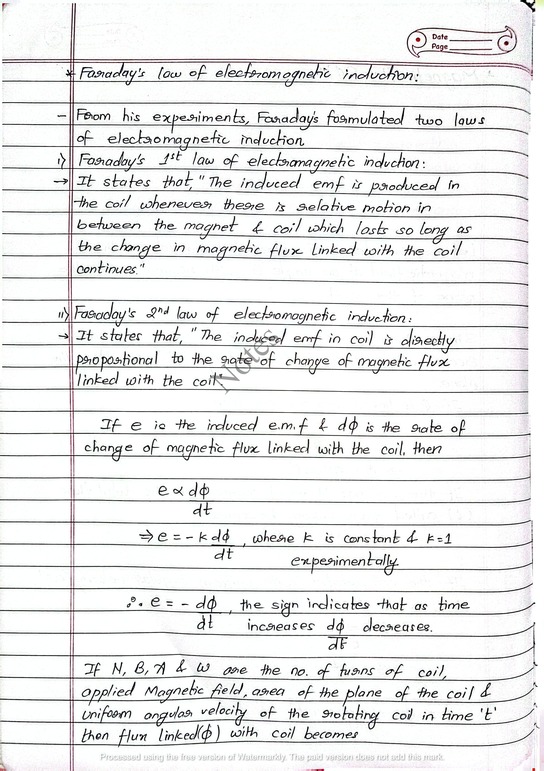 Date
Page
* Faraday's law of electromagnetic induction:
- From his experiments, Faraday's formulated two laws
of electromagnetic induction
i) Faraday's 1st law of electromagnetic induction:
→ It states that, "The induced emf is produced in
the coil whenever there is relative motion in
between the magnet & coil which lasts so long as
the change in magnetic flux linked with the coil
continues."
ii) Faraday's 2nd law of electromagnetic induction:
→ It states that, "The induced emf in coil is directly
proportional to the rate of change of magnetic flux
linked with the coil"
Notes
If e is the induced e.m.f & dϕ is the rate of
change of magnetic flux linked with the coil, then
e ∝ dϕ
dt
⇒ e = - k dϕ , where k is constant & k=1
dt experimentally
∴ e = - dϕ , the sign indicates that as time
dt increases dϕ decreases.
dt
If N, B, A & w are the no. of turns of coil,
applied Magnetic field, area of the plane of the coil &
uniform angular velocity of the rotating coil in time 't'
then flux linked(ϕ) with coil becomes
Processed using the free version of Watermarkly. The paid version does not add this mark.